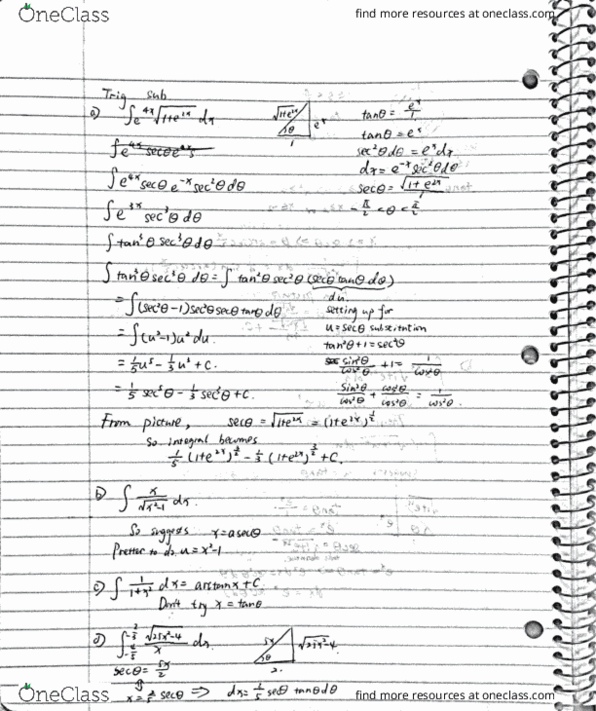 OneClass
find more resources at oneclass.com
Trig sub
a) ∫e^{4x}√(1+e^{2x}) dx
√(1+e^{2x})
e^x
θ
1
tanθ = e^x/1
tanθ = e^x
sec²θ dθ = e^x dx
dx = e^{-x} sec²θ dθ
secθ = √(1+e^{2x})/1
-π/2 < θ < π/2
∫e^{4x} secθ e^{-x} sec²θ dθ
∫e^{3x} sec³θ dθ
∫tan³θ sec³θ dθ
∫tan³θ sec³θ dθ = ∫tan²θ sec²θ (secθ tanθ dθ)
du
= ∫(sec²θ-1) sec²θ secθ tanθ dθ
setting up for
u = secθ substitution
= ∫(u²-1)u² du
tan²θ+1 = sec²θ
= 1/5 u⁵ - 1/3 u³ + C.
sin²θ/cos²θ + 1 = 1/cos²θ
= 1/5 sec⁵θ - 1/3 sec³θ + C.
sin²θ/cos²θ + cos²θ/cos²θ = 1/cos²θ.
From picture, secθ = √(1+e^{2x}) = (1+e^{2x})^{1/2}
So integral becomes
1/5 (1+e^{2x})^{5/2} - 1/3 (1+e^{2x})^{3/2} + C.
b) ∫ x/√(x²-1) dx.
So suggests x = a secθ
to do u = x²-1
c) ∫ 1/(1+x²) dx = arctan x + C.
Don't try x = tanθ
d) ∫ √(25x²-4)/x dx
5x
√(25x²-4)
θ
2
secθ = 5x/2
x = 2/5 secθ ⇒ dx = secθ tanθ dθ
OneClass
find more resources at oneclass.com